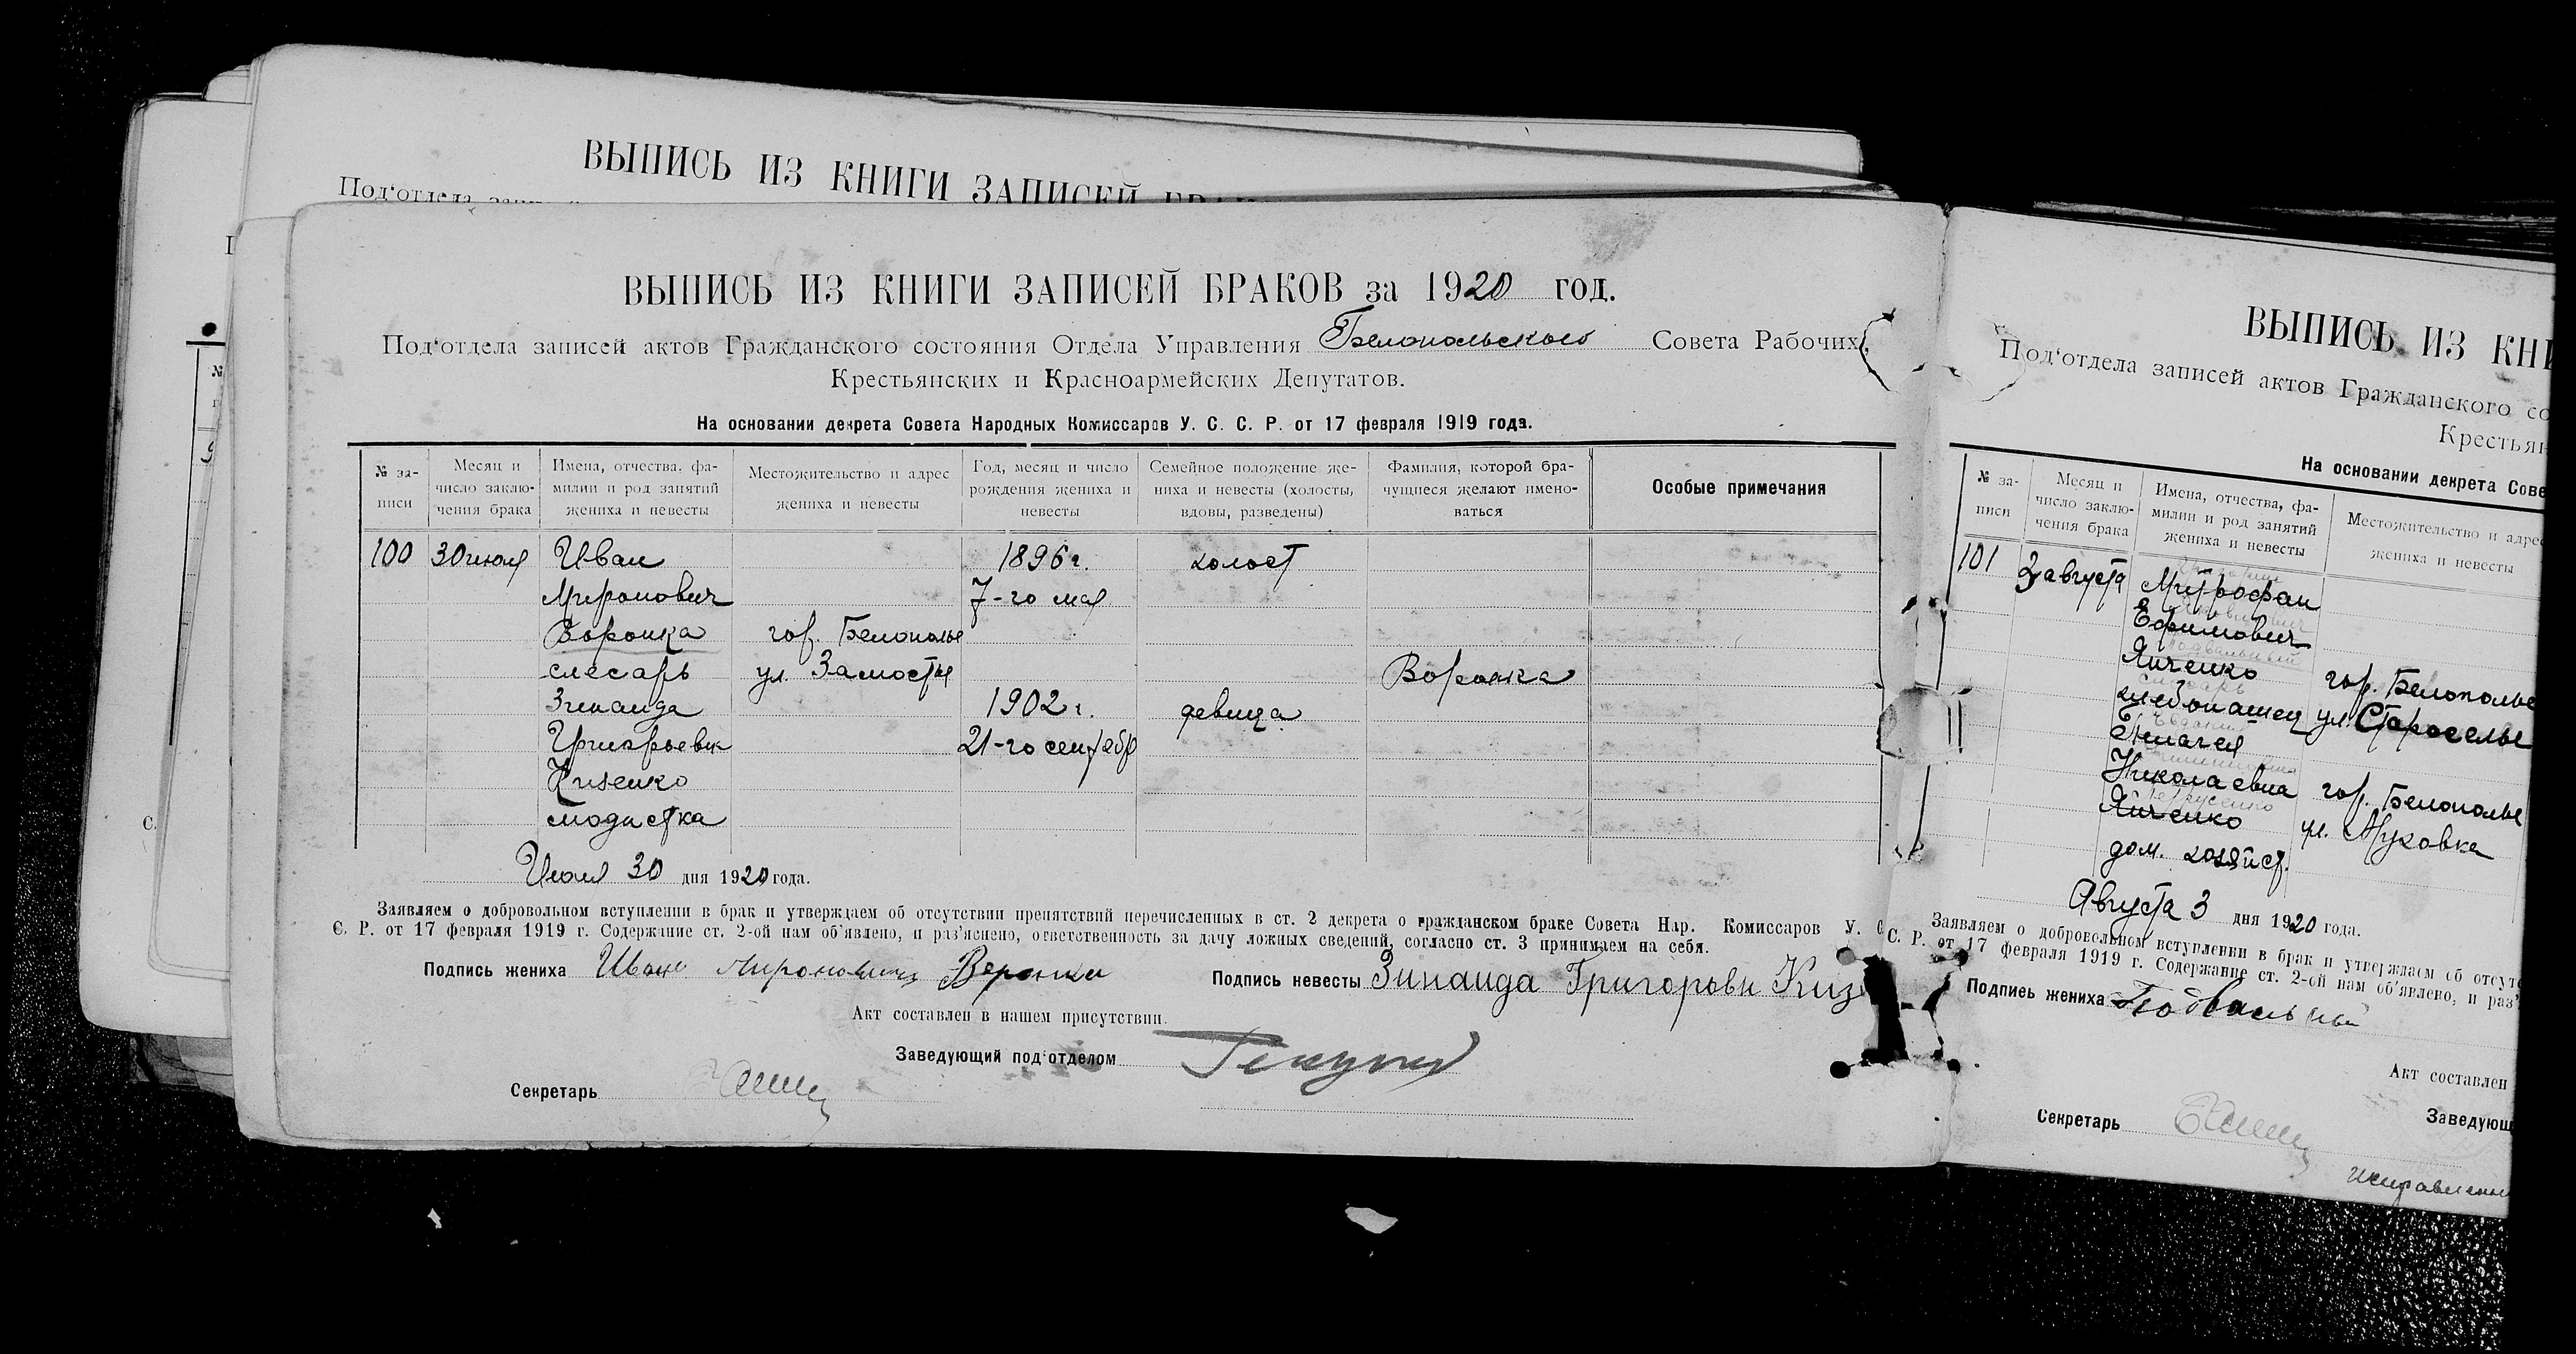 ВЫПИСЬ ИЗ КНИГИ ЗАПИСЕЙ
Под‘отдела
ВЫПИСЬ ИЗ КНИГИ ЗАПИСЕЙ БРАКОВ за 1920 год.
Под‘отдела записей актов Гражданского состояния Отдела Управления Белопольского Совета Рабочих,
Крестьянских и Красноармейских Депутатов.
На основании декрета Совета Народных Комиссаров У. С. С. Р. от 17 февраля 1919 года.
№ за-
писи
Месяц и
число заклю-
чения брака
Имена, отчества, фа-
милии и род занятий
жениха и невесты
Местожительство и адрес
жениха и невесты
Год, месяц и число
рождения жениха и
невесты
Семейное положение же-
ниха и невесты (холосты,
вдовы, разведены)
Фамилия, которой бра-
чущиеся желают имено-
ваться
Особые примечания
100 30 июля Иван 1896 г. холост
Миронович 7-го мая
Воронка гор. Белополье
слесарь ул. Замостья Воронка
Зинаида 1902 г. девица
Григорьевн 21-го сентябр
Кизенко
модистка
Июля 30 дня 1920 года.
Заявляем о добровольном вступлении в брак и утверждаем об отсутствии препятствий перечисленных в ст. 2 декрета о гражданском браке Совета Нар. Комиссаров У. С
С. Р. от 17 февраля 1919 г. Содержание ст. 2-ой нам об‘явлено, и раз‘яснено, ответственность за дачу ложных сведений, согласно ст. 3 принимаем на себя.
Подпись жениха Иван Миронович Воронка Подпись невесты Зинаида Григоровн Киз
Акт составлен в нашем присутствии.
Заведующий под‘отделом
Секретарь
ВЫПИСЬ ИЗ КНИ
Под‘отдела записей актов Гражданского со
Крестьян
На основании декрета Сове
№ за-
писи
Месяц и
число заклю-
чения брака
Имена, отчества, фа-
милии и род занятий
жениха и невесты
Местожительство и адрес
жениха и невесты
101 3 августа Митрофан
Ефимович
Янченко гор. Белополье
хлебопашец ул. Староселье
Николаевна гор. Белополье
Янченко ул. Луховка
дом. хозяйст.
Августа 3 дня 1920 года.
Заявляем о добровольном вступлении в брак и утверждаем об отсут
С. Р. от 17 февраля 1919 г. Содержание ст. 2-ой нам об‘явлено, и раз‘
Подпись жениха Подвальный
Акт составлен
Заведующ
Секретарь